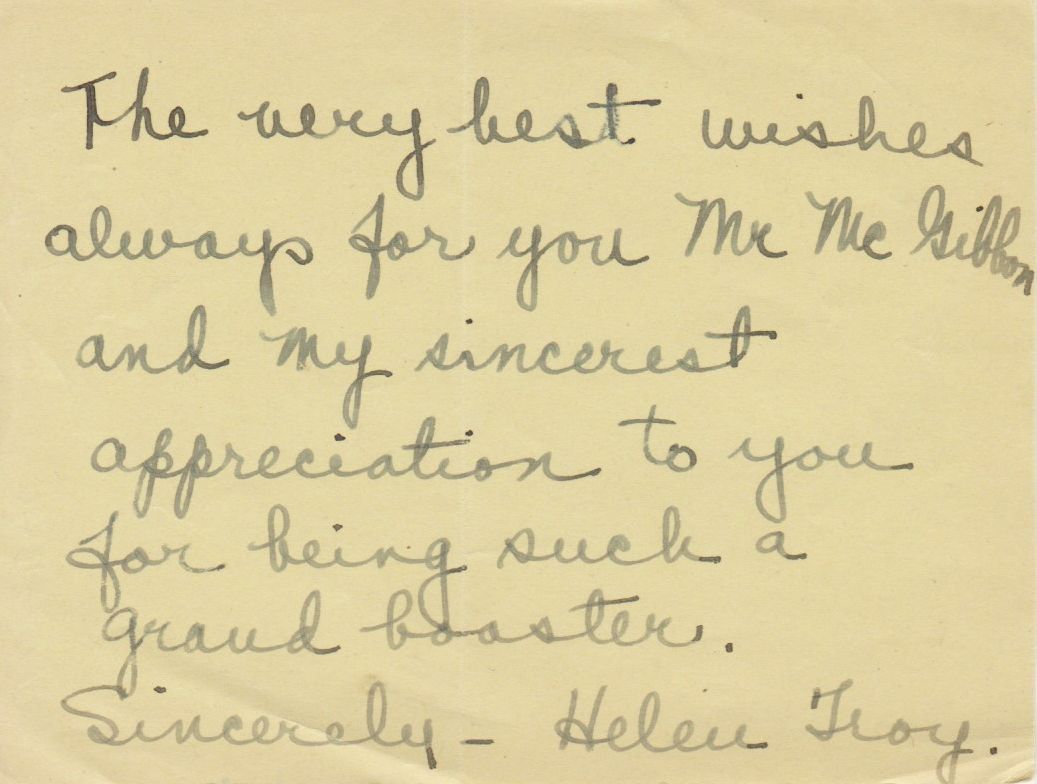 The very best wishes
always for you Mr Mc Gibbon
and my sincerest
appreciation to you
for being such a
grand booster.
Sincerely - Helen Troy.